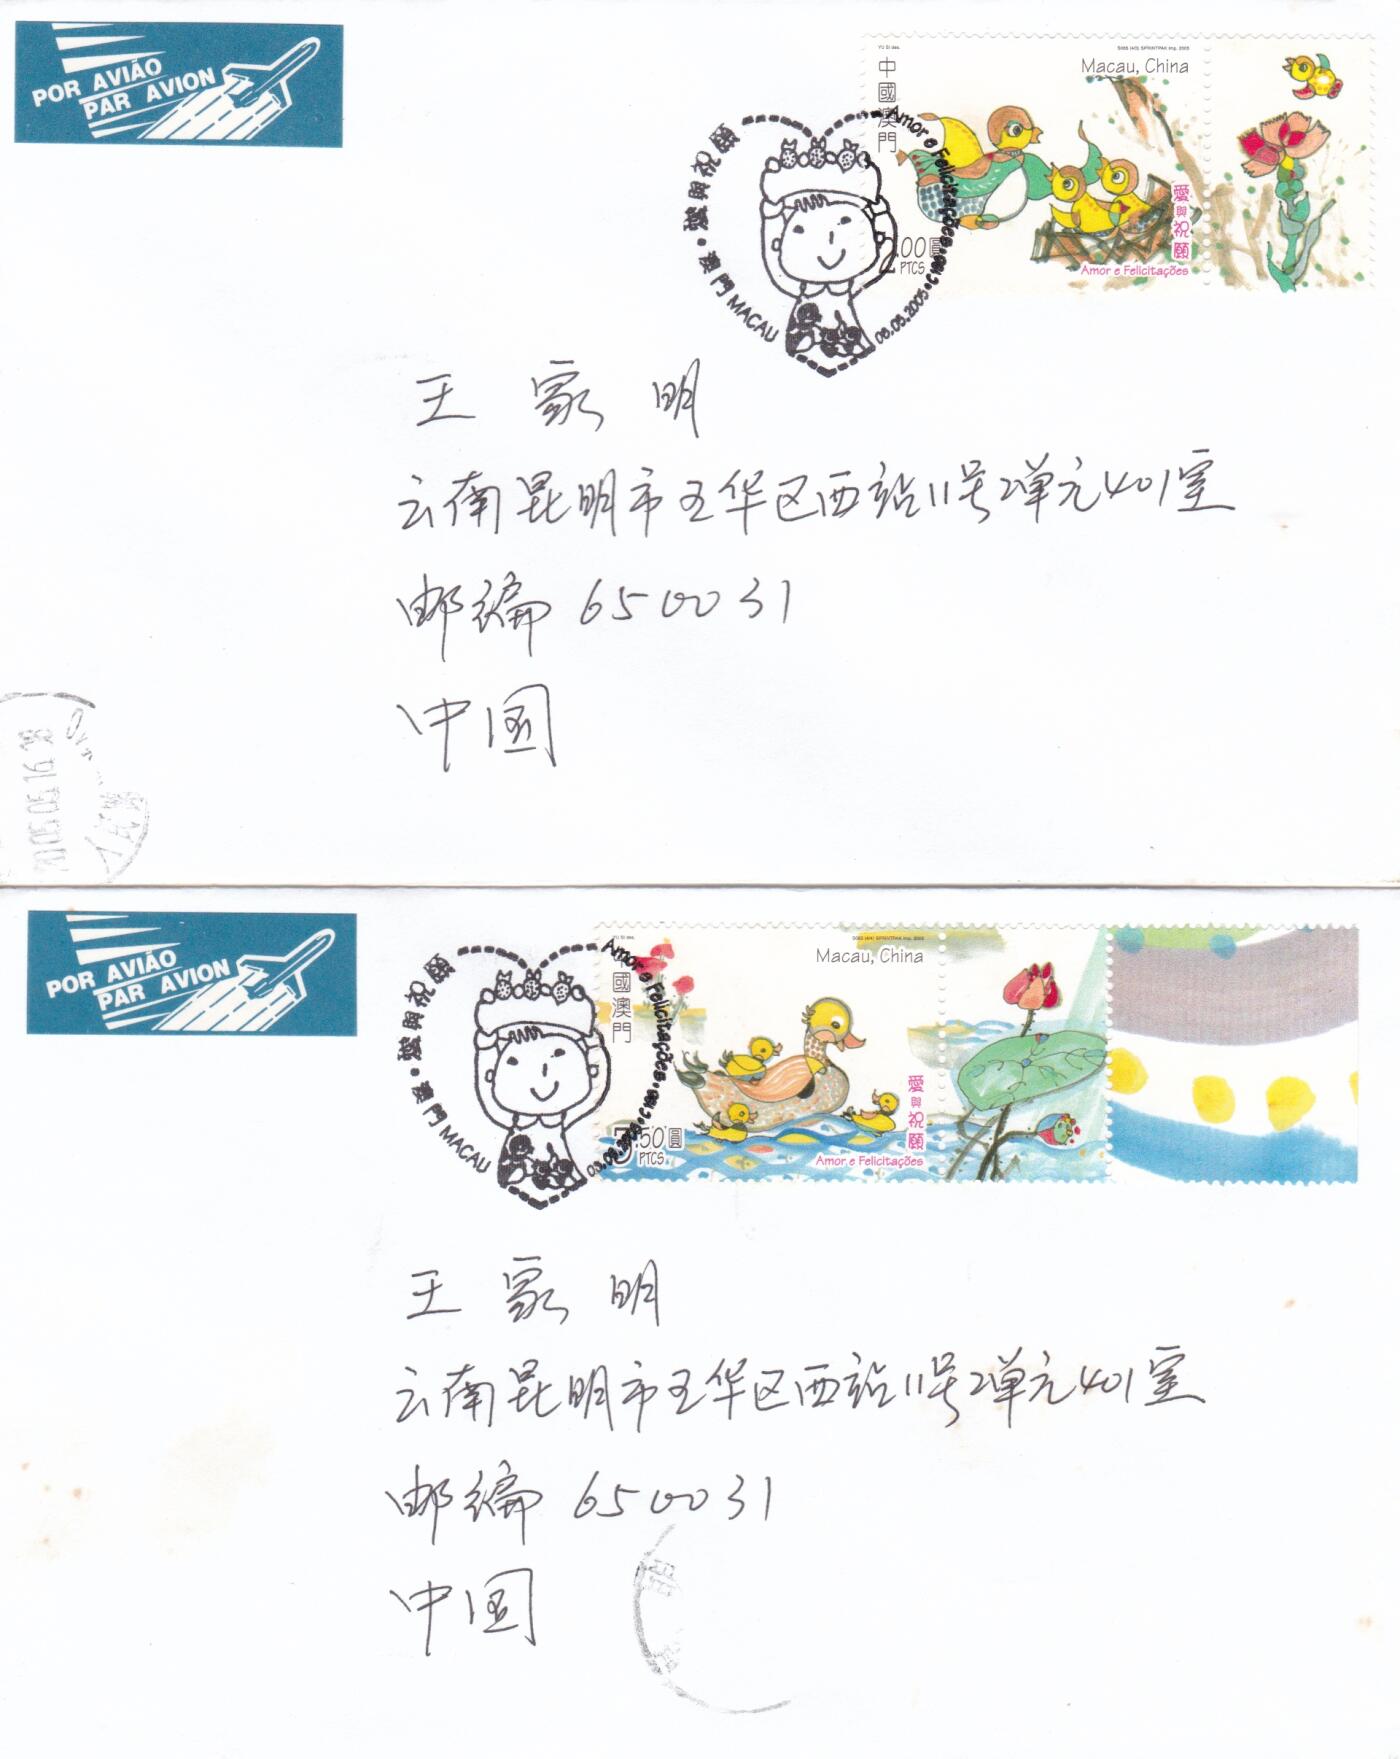 POR AVIÃO
PAR AVION
YU SI des.
S065 (4/3) SPRINTPAK Imp. 2005
中國澳門
Macau, China
2.00圓
PTCS
愛與祝願
Amor e Felicitações
澳門 MACAU • 愛與祝願
Amor e Felicitações •
08.05.2005
王家明
云南昆明市五华区西站11号2单元401室
邮编 650031
中国
2005.05.16.18
POR AVIÃO
PAR AVION
YU SI des.
S065 (4/4) SPRINTPAK Imp. 2005
中國澳門
Macau, China
.50圓
PTCS
愛與祝願
Amor e Felicitações
澳門 MACAU • 愛與祝願
Amor e Felicitações •
王家明
云南昆明市五华区西站11号2单元401室
邮编 650031
中国